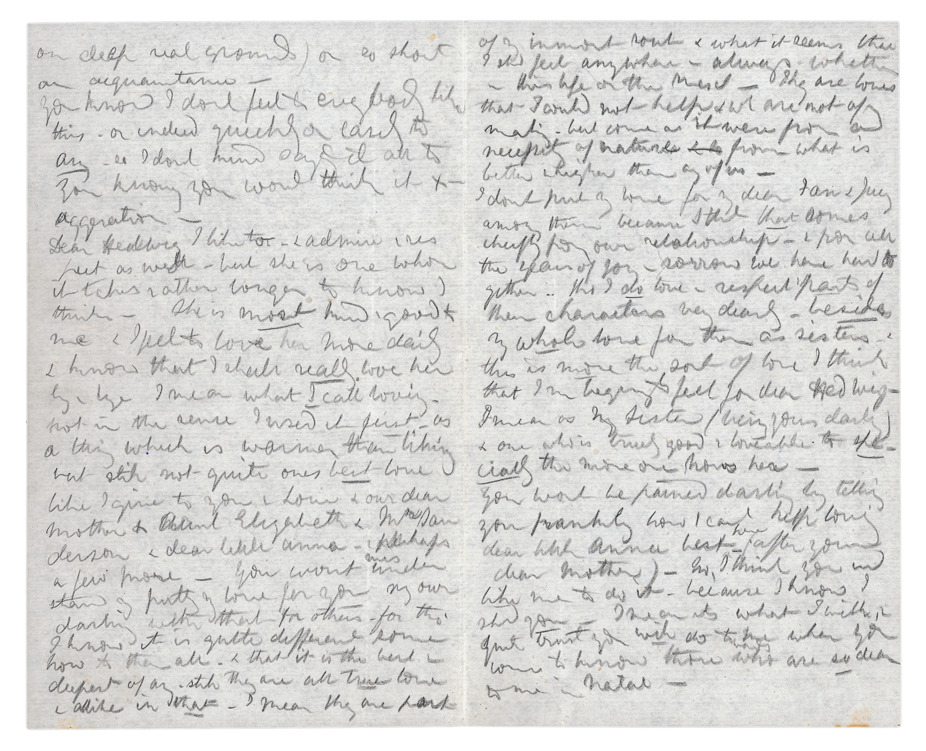 on deep real grounds) or so short
an acquaintance —
You know I don't feel to everybody like
this - or indeed quickly or easily to
any - so I don't mind saying it all to
you knowing you won't think it ex-
aggeration —
Dear Hedwig I like too - & admire & res
pect as well - but she is one whom
it takes rather longer to know I
think — She is most kind & good to
me & I feel to love her more daily
& know that I shall really love her
by & bye I mean what I call loving -
not in the sense I used it first - as
a thing which is warmer than liking
but still not quite ones best love
like I give to you & Loui & our dear
mother & Aunt Elizabeth & Mrs San
derson & dear little Anna - & perhaps
a few more — You won't misunder
stand my putting my love for you my own
darling with that for others - for tho'
I know it is quite different some
how to them all - & that it is the best &
deepest of any - still they are all true love
& alike in that - I mean they are part
of my inmost soul & what it seems that
I shd feel anywhere - always - whether
in this life or the next — They are loves
that I could not help & wh are not of my
making - but come as it were from a
necessity of nature & from what is
better & higher than any of us —
I dont put my love for my dear Fan & Lucy
among them because I think that comes
chiefly from our relationship - & from all
the years of joy & sorrow we have had to
gether - tho' I do love & respect parts of
their characters very dearly - besides
my whole love for them as sisters - &
this is more the sort of love I think
that I'm beginning to feel for dear Hedwig -
I mean as my sister (being yours darling)
& one who is truly good & loveable to spe-
cially the more one knows her —
You wont be pained darling by telling
you frankly how I cant help loving
dear little Anna best here (after your
dear Mother) - No, I think you will
like me to do it - because I know I
shd you — I mean its what I wish &
quite trust you will do to me when you
come to know those who are so dear
to me in Natal —